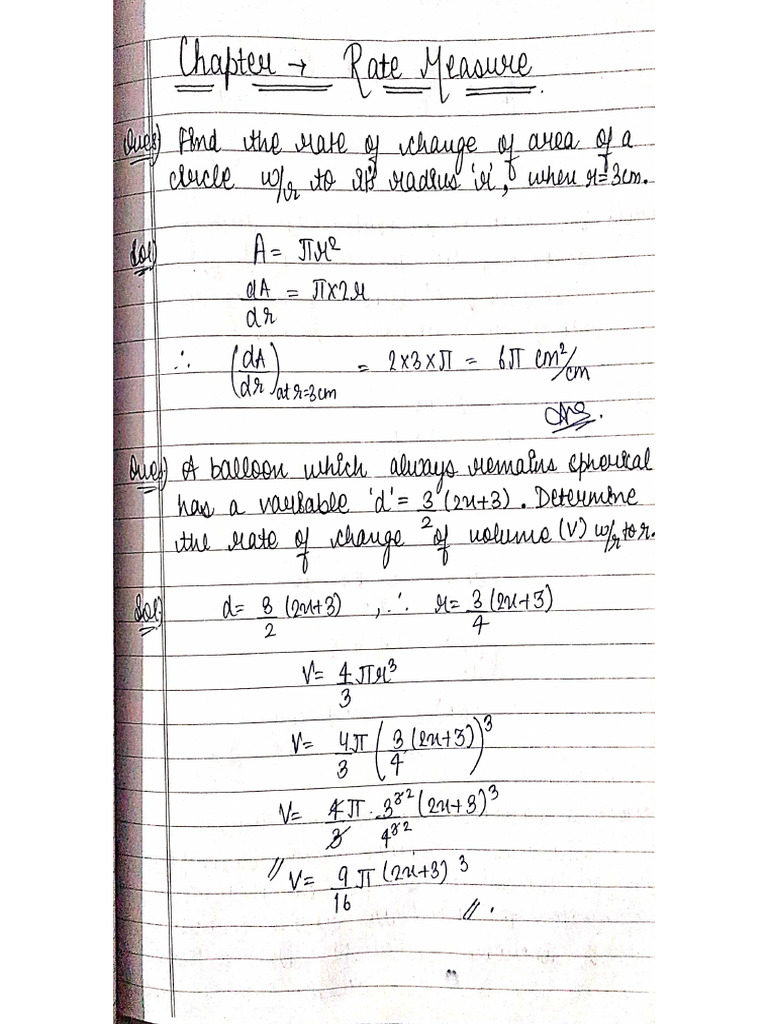 Chapter → Rate Measure.
Ques) Find the rate of change of area of a
circle w/r to it's radius 'r', when r=3cm.
Sol) A = πr²
dA/dr = π×2r
∴ (dA/dr) at r=3cm = 2×3×π = 6π cm²/cm
Ans.
Ques) A balloon which always remains spherical
has a variable 'd' = 3/2 (2x+3). Determine
the rate of change of volume (V) w/r to r.
Sol) d = 3/2 (2x+3) , ∴ r = 3/4 (2x+3)
V = 4/3 πr³
V = 4π/3 (3/4 (2x+3))³
V = 4π/3 · 3³²/4³² (2x+3)³
// V = 9/16 π (2x+3)³
// .